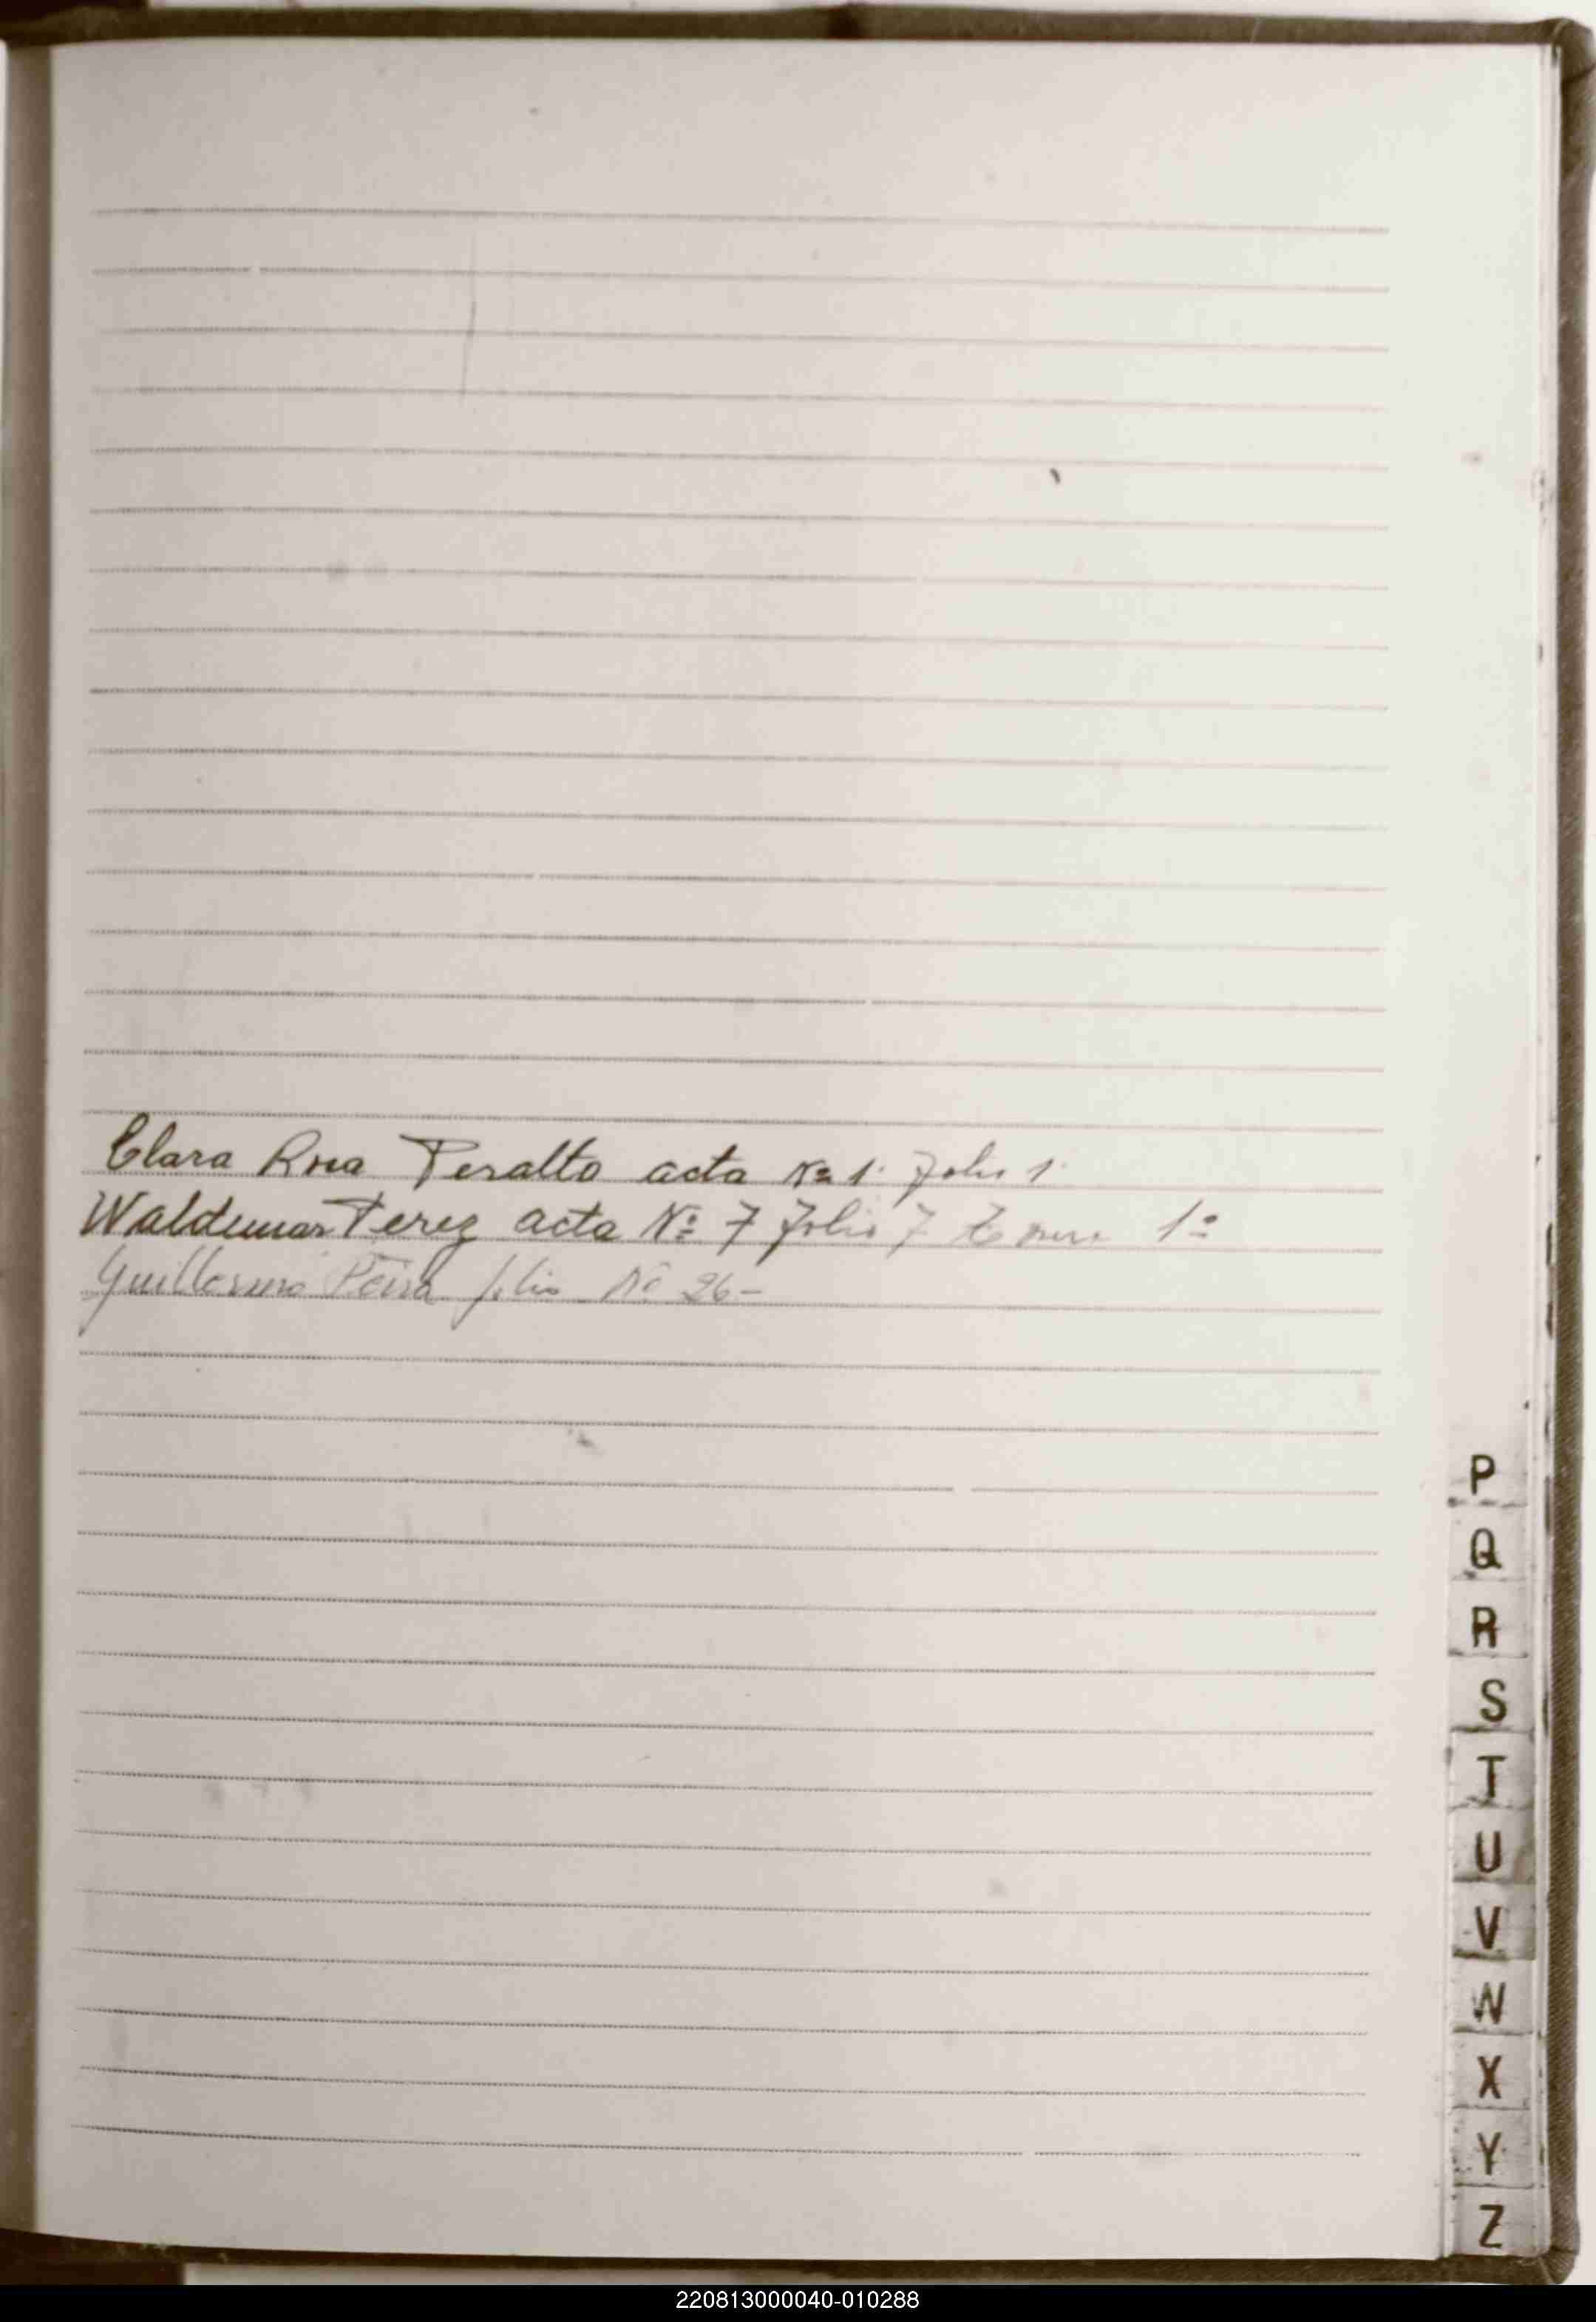 Clara Rosa Peralto acta Nº 1. Folio 1.
Waldemar Perez acta Nº 7 Folio 7 Tomo 1º
Guillermo folio Nº 26-
P
Q
R
S
T
U
V
W
X
Y
Z
220813000040-010288